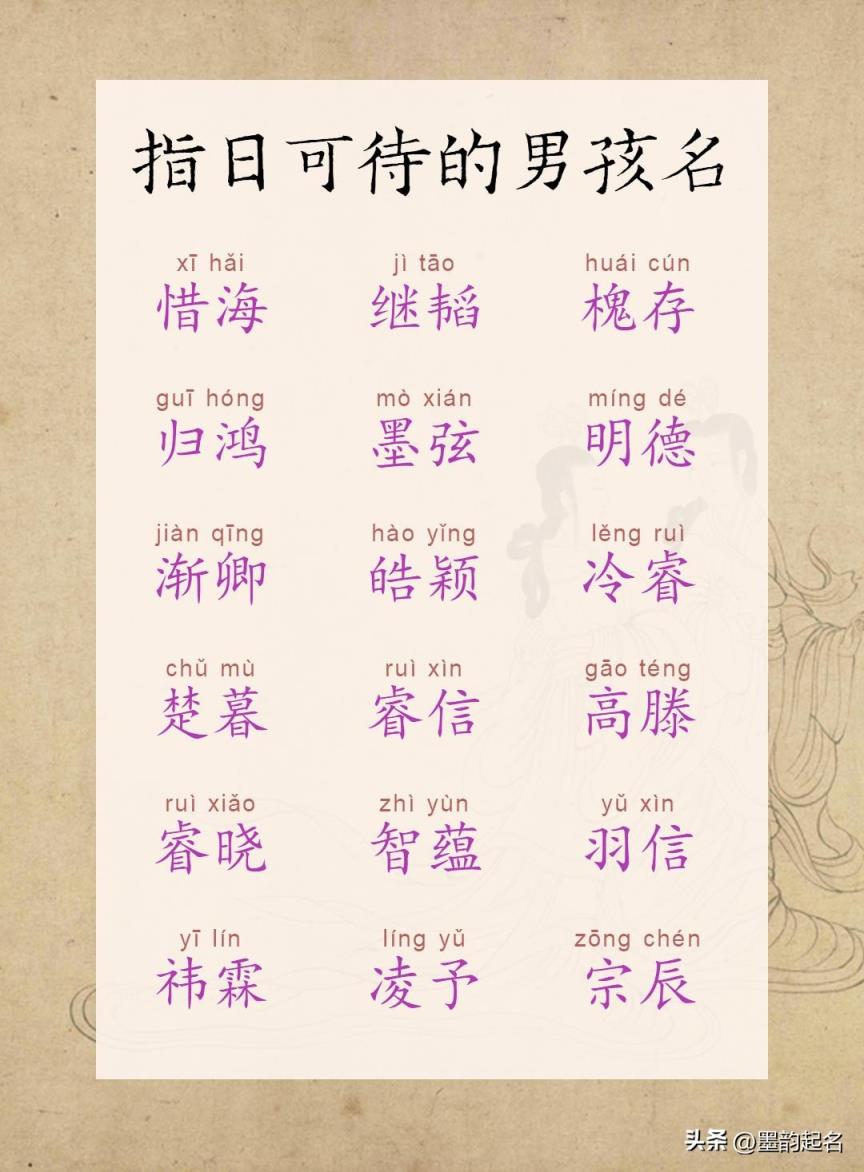 指日可待的男孩名
xī hǎi jì tāo huái cún
惜海 继韬 槐存
guī hóng mò xián míng dé
归鸿 墨弦 明德
jiàn qīng hào yǐng lěng ruì
渐卿 皓颖 冷睿
chǔ mù ruì xìn gāo téng
楚暮 睿信 高滕
ruì xiǎo zhì yùn yǔ xìn
睿晓 智蕴 羽信
yī lín líng yǔ zōng chén
祎霖 凌予 宗辰
头条 @墨韵起名